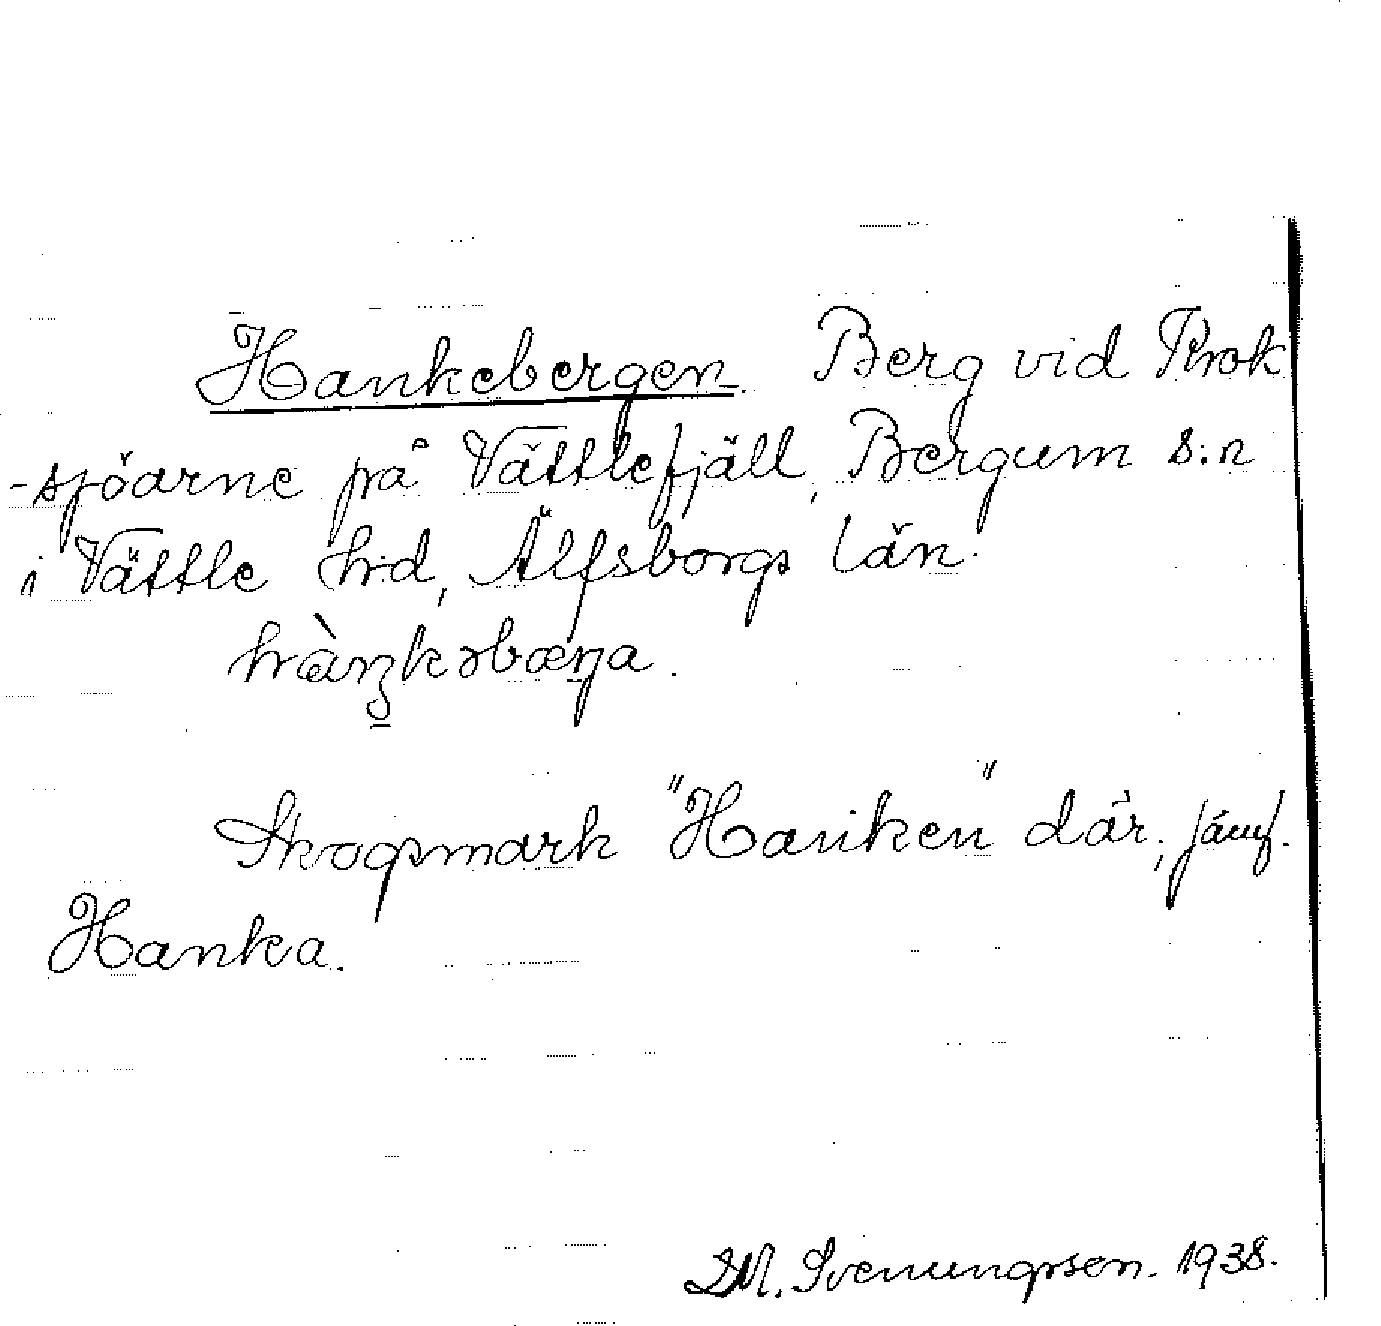 Hankebergen. Berg vid Krok
-sjöarne på Vättlefjäll, Bergum s:n
i Vättle hd, Älfsborgs län.
hàŋkəbæŋa.
Skogsmark "Hanken" där, jämf.
Hanka.
D.M. Svenungsson. 1938.